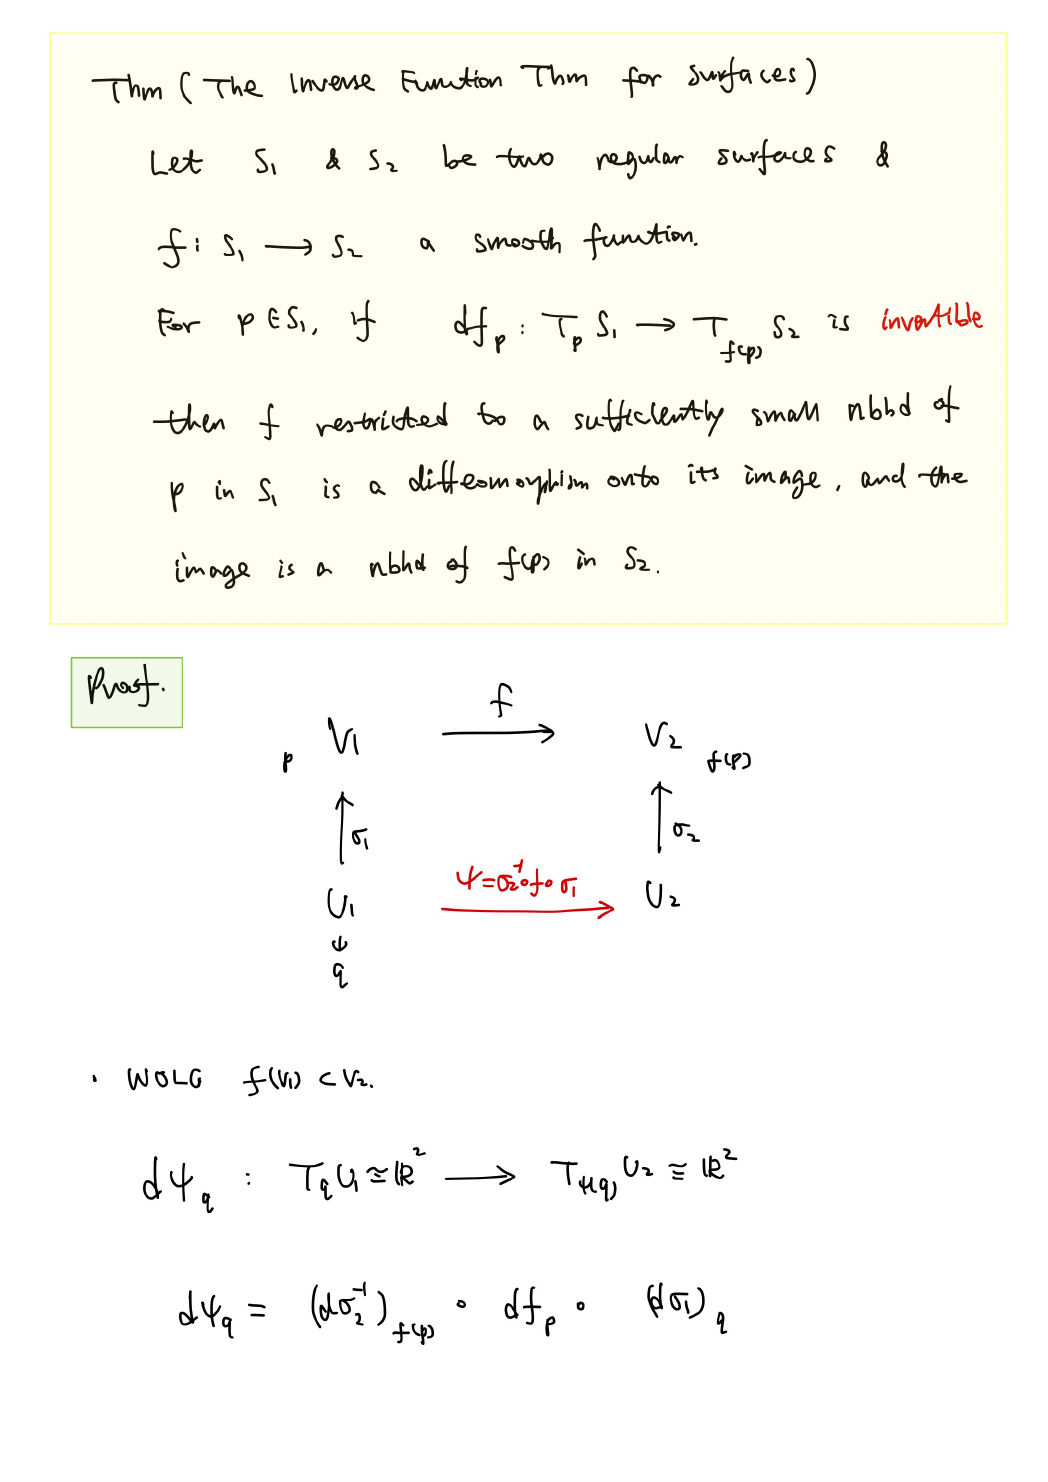 Thm ( The Inverse Function Thm for surfaces )
Let S₁ & S₂ be two regular surfaces &
f : S₁ ⟶ S₂ a smooth function.
For p ∈ S₁, if df_p : T_p S₁ ⟶ T_{f(p)} S₂ is invertible
then f restricted to a sufficiently small nbhd of
p in S₁ is a diffeomorphism onto its image, and the
image is a nbhd of f(p) in S₂.
Proof.
f
p V₁ ⟶ V₂ f(p)
↑ σ₁ ↑ σ₂
ψ = σ₂⁻¹∘f∘σ₁
U₁ ⟶ U₂
ψ
q
· WOLG f(V₁) ⊂ V₂.
dψ_q : T_q U₁ ≅ ℝ² ⟶ T_{ψ(q)} U₂ ≅ ℝ²
dψ_q = (dσ₂⁻¹)_{f(p)} ∘ df_p ∘ (dσ₁)_q